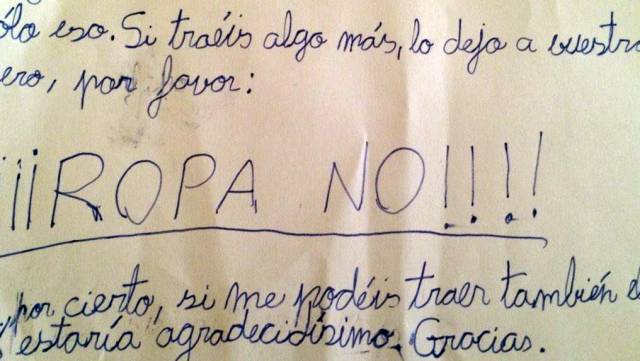 eso. Si traéis algo más, lo dejo a
por favor:
¡¡¡ROPA NO!!!!
por cierto, si me podéis traer también
estaría agradecidísimo. Gracias.